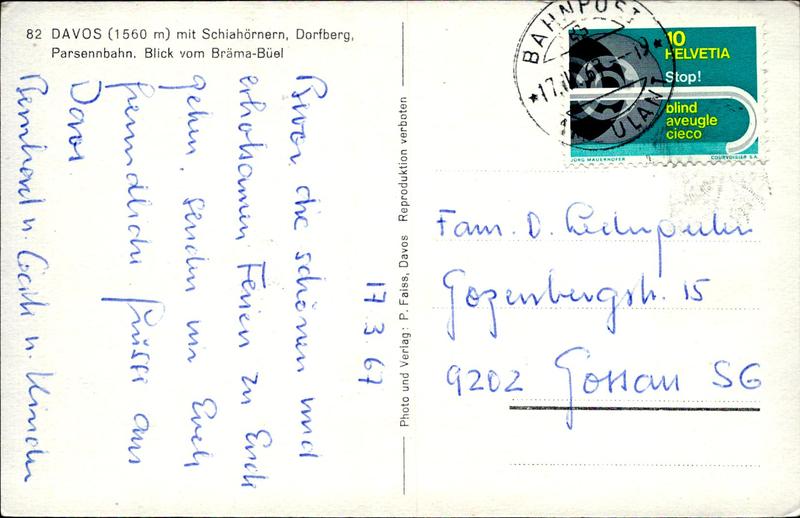 82 DAVOS (1560 m) mit Schiahörnern, Dorfberg,
Parsennbahn. Blick vom Bräma-Büel
17.3.67
Bevor die schönen und
erholsamen Ferien zu Ende
gehen, senden wir Euch
freundliche Grüsse aus
Davos.
Bernhard u. Cécile u. Kinder
Photo und Verlag: P. Faiss, Davos Reproduktion verboten
BAHNPOST
AMBULANT
10
HELVETIA
Stop!
blind
aveugle
cieco
JÖRG MAUERHOFER
COURVOISIER S.A.
Fam. D.
Gozenbergstr. 15
9202 Gossau SG